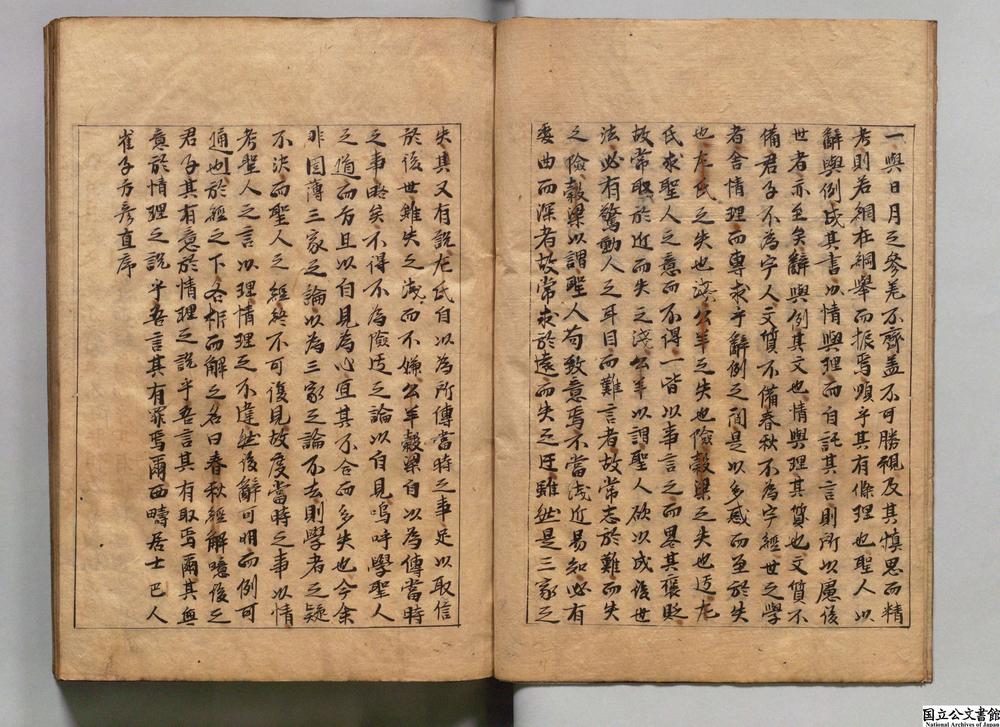 一與日月之參差不齊盖不可勝視及其慎思而精
考則若網在綱舉而振焉順乎其有條理也聖人以
辭與例成其書以情與理而自託其言則所以慮後
世者亦至矣辭與例其文也情與理其質也文質不
備君子不為字人文質不備春秋不為字經世之學
者舍情理而專求乎辭例之間是以多惑而至於失
也左氏之失也淺公羊之失也險穀梁之失也迂左
氏求聖人之意而不得一皆以事言之而畧其褒貶
故常取於近而失之淺公羊以謂聖人欲以成後世
法必有驚動人之耳目而難言者故常志於難而失
之險穀梁以謂聖人苟致意焉不當淺近易知必有
委曲而深者故常求於遠而失之迂雖然是三家之
失其又有說左氏自以為所傳當時之事足以取信
於後世雖失之淺而不嫌公羊穀梁自以為傳當時
之事略矣不得不為險迂之論以自見嗚呼學聖人
之道而方且以自見為心宜其不合而多失也今余
非固薄三家之論以為三家之論不去則學者之疑
不決而聖人之經終不可復見故度當時之事以情
考聖人之言以理情理之不違然後辭可明而例可
通也於經之下各析而解之名曰春秋經解噫後之
君子其有意於情理之說乎吾言其有取焉爾其無
意於情理之說乎吾言其有罪焉爾西疇居士巴人
崔子方彦直序
国立公文書館
National Archives of Japan